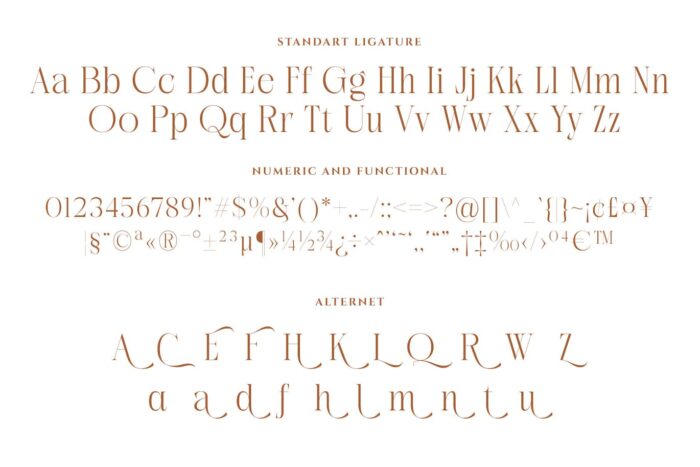 STANDART LIGATURE
Aa Bb Cc Dd Ee Ff Gg Hh Ii Jj Kk Ll Mm Nn
Oo Pp Qq Rr Tt Uu Vv Ww Xx Yy Zz
NUMERIC AND FUNCTIONAL
0123456789!"#$%&'()*+,.-/:;<=>?@[]\^_`{|}~¡¢£¤¥
¦§¨©ª«®¯°±²³µ¶»¼½¾¿÷×
†‡‰‹/›⁰⁴€™
ALTERNET
A C E F H K L Q R W Z
a a d f h l m n t u